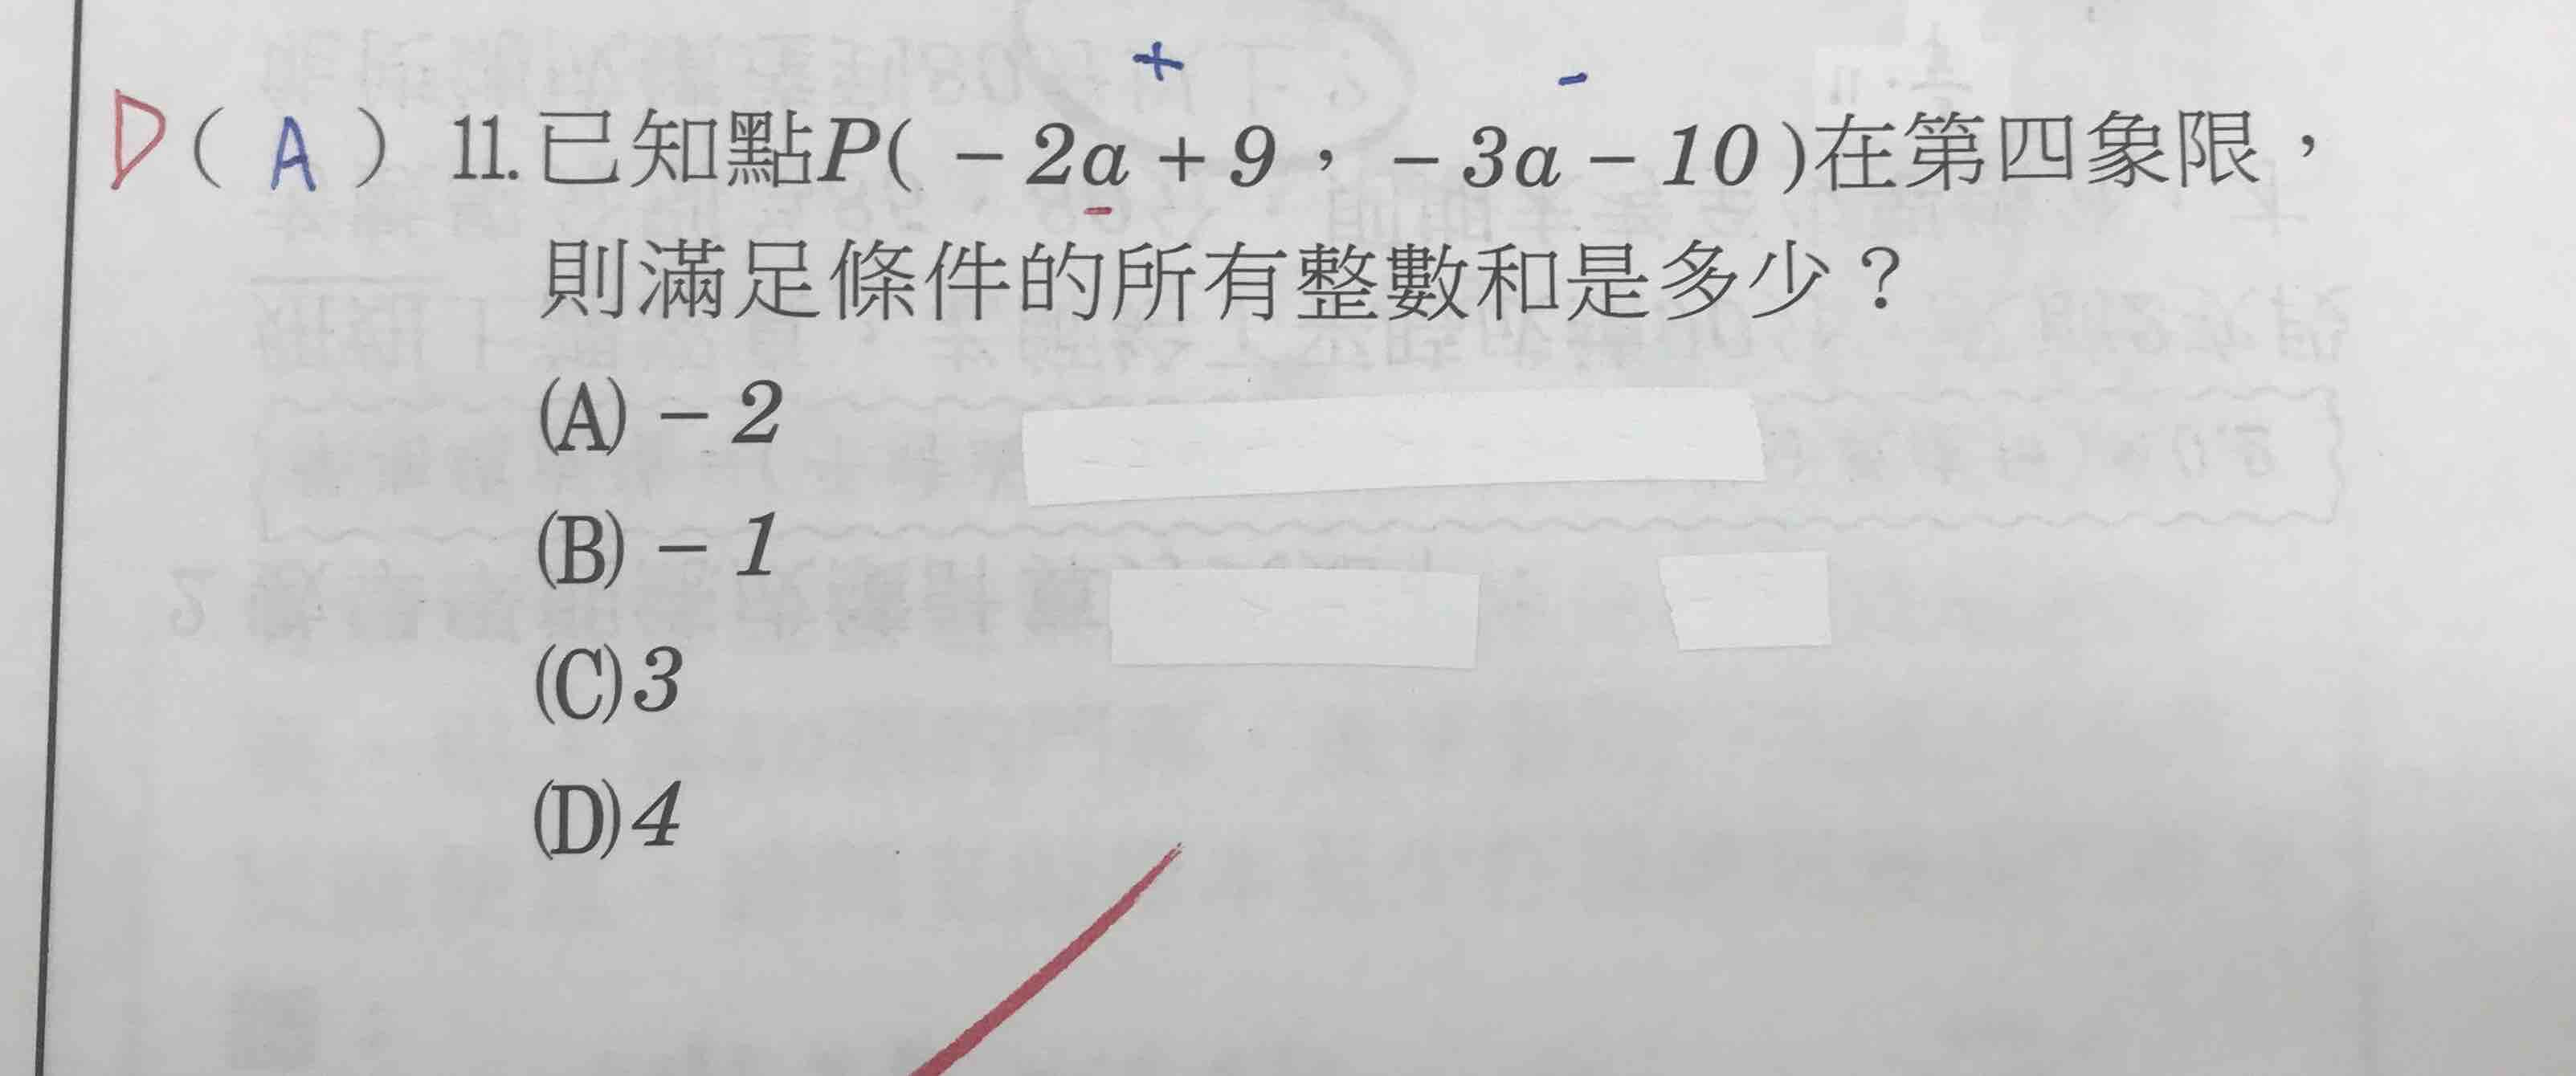 + -
D ( A ) 11. 已知點P( -2a+9,-3a-10 )在第四象限,
-
則滿足條件的所有整數和是多少?
(A) -2
(B) -1
(C) 3
(D) 4